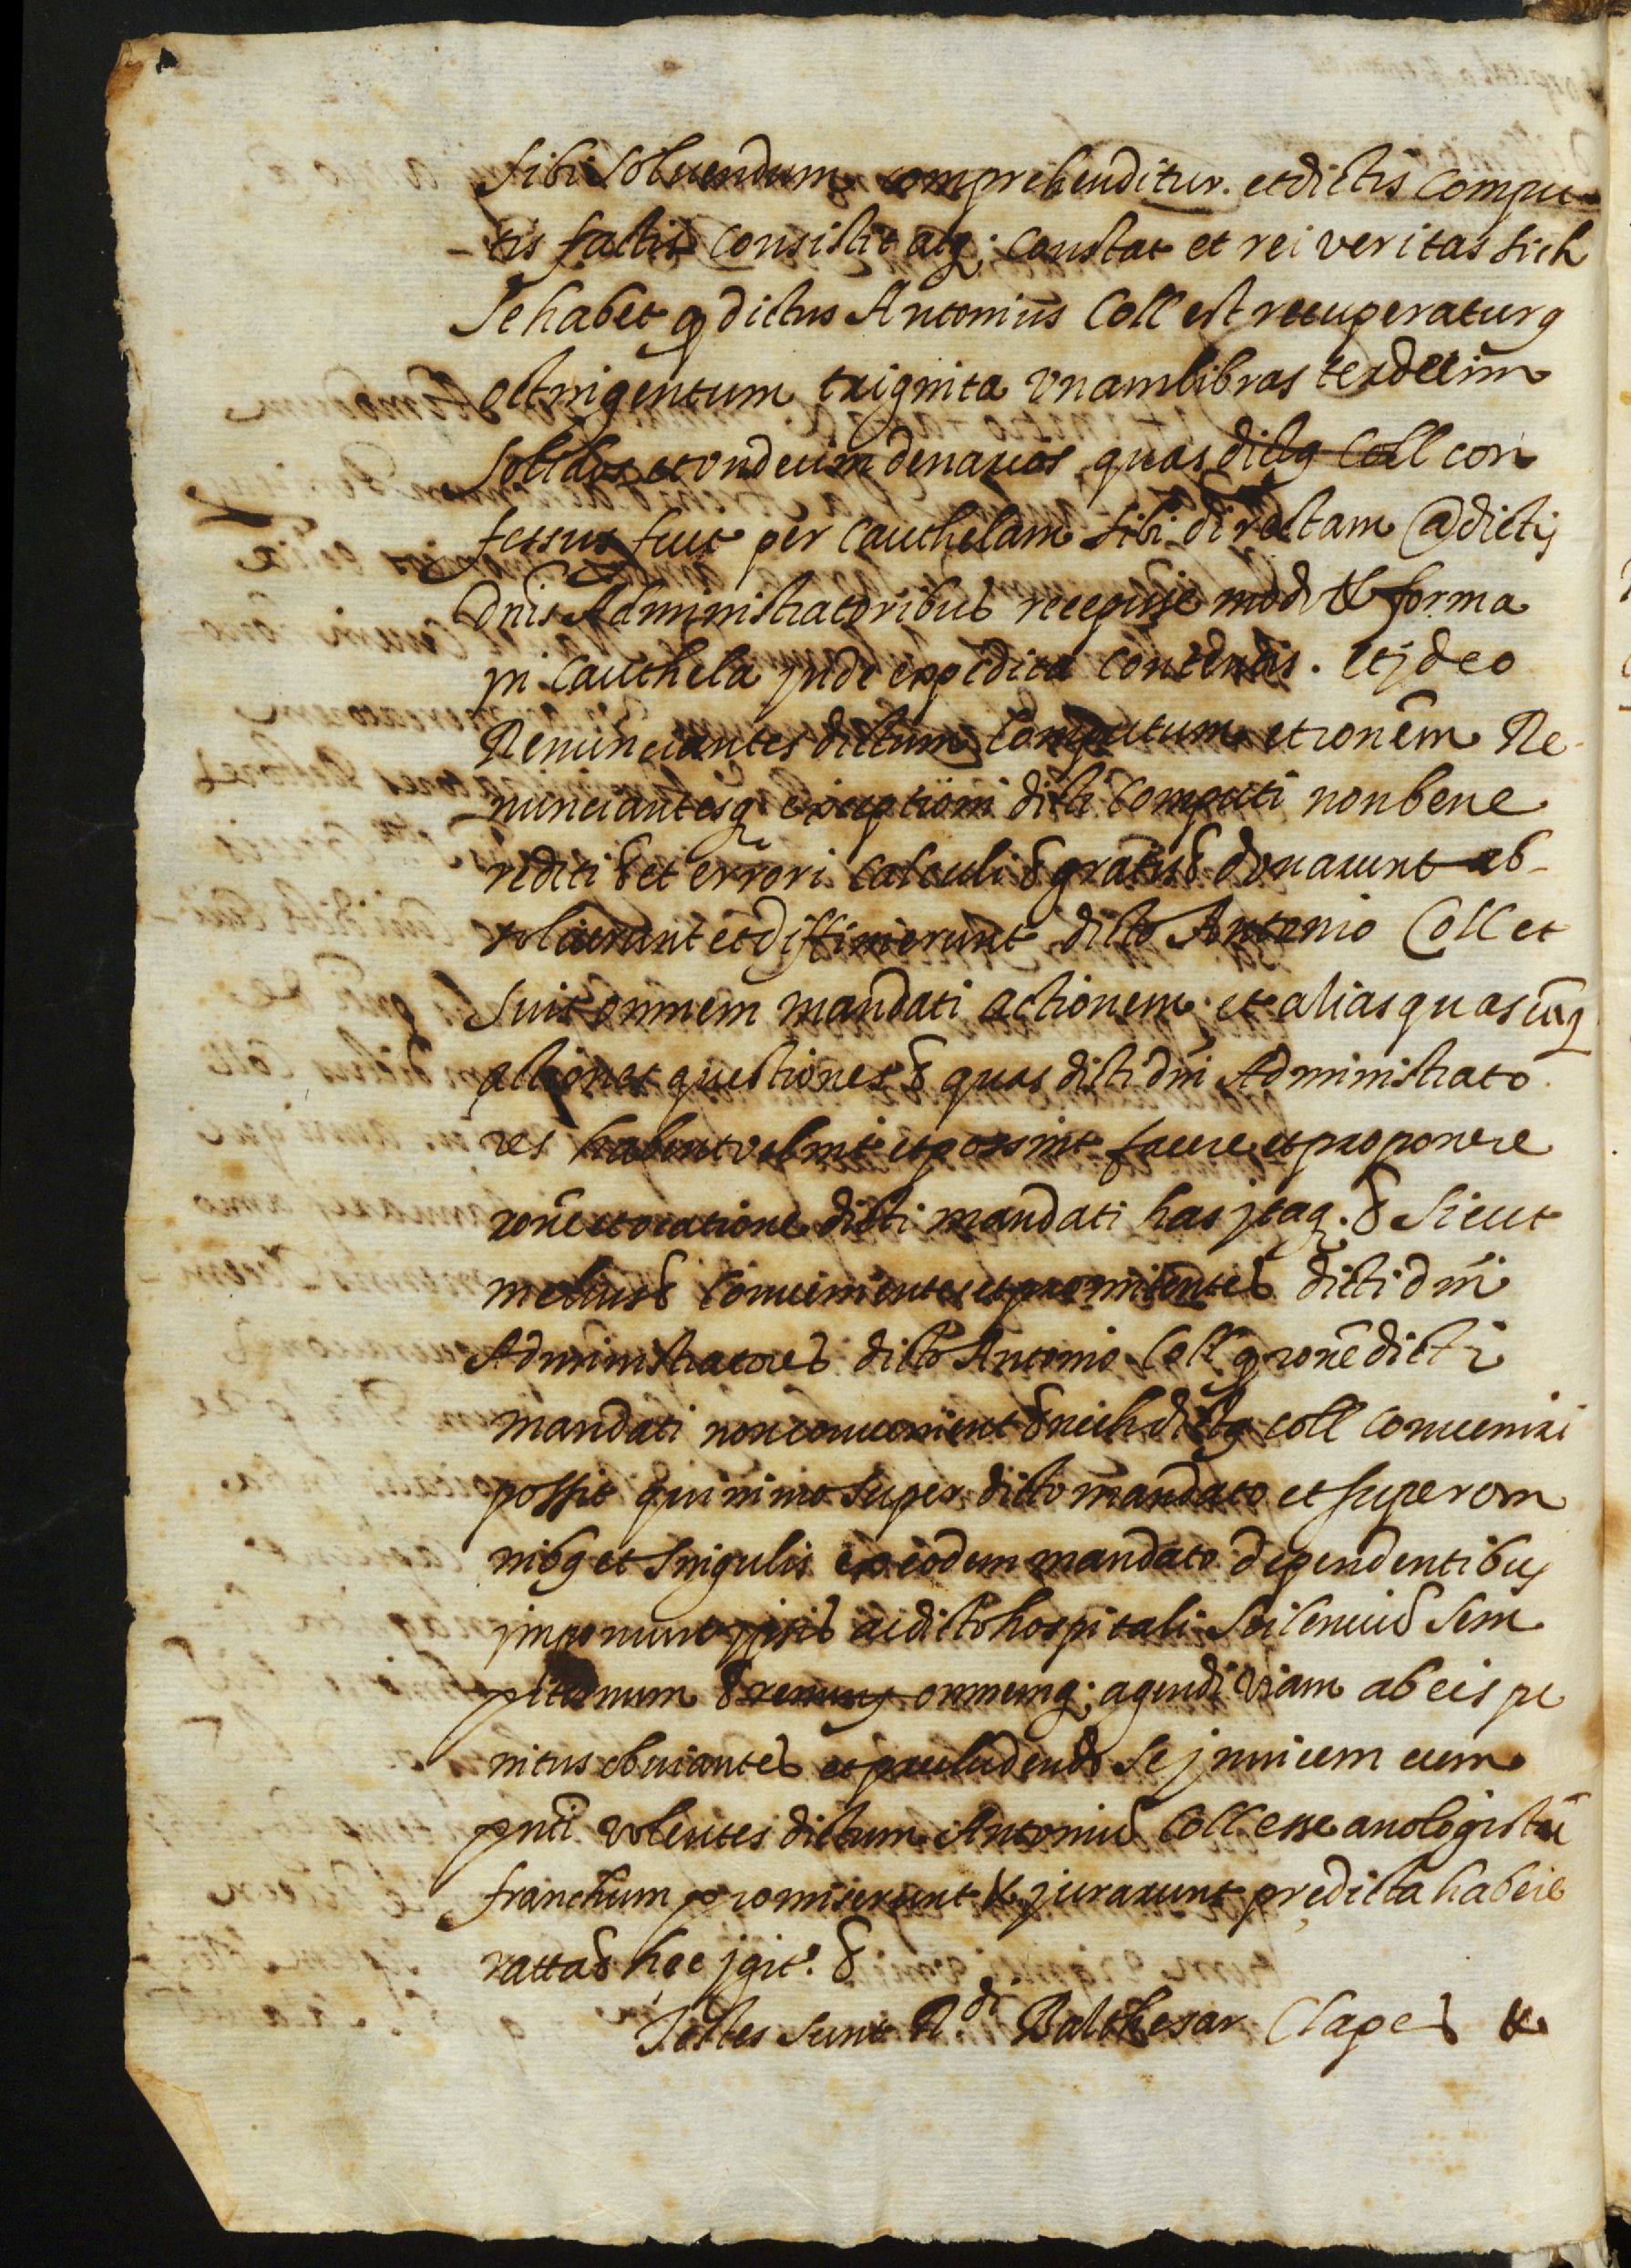 sibi soluendum comprehenditur. et dictis compu-
-tis factis consistit atq; constat et rei veritas sich
se habet q dictus Antonius Coll est recuperaturq
octingentum triginta vnam libras terdecim
solidos et vndecim denarios quas dictq Coll con
fessus fuit per cauthelam sibi directam @ dictis
dnis Administratoribus recepisse modo & forma
in cauthela inde expedita contentis. et jdeo
Renunciantes dictum Computum et ronem Re-
nunciantesq exceptioni dicti computi non bene
rediti & et errori calculi & gratis & donarunt ab-
soluerunt et diffinierunt dicto Antonio Coll et
suis omnem mandati actionem et alias quascuq
actiones questiones & quas dicti dni Administrato
res habent velint et possint facere et proponere
rone et ocatione dicti mandati has jtaq. & sicut
melius & conuenientes et promitentes dicti dni
Administratores dicto Antonio Coll q rone dicti
mandati non conuenient & nech dictq coll conueniri
possit quinimo super dicto mandato et super om
nibq et singulis ex eodem mandato dependentibus
imponunt ipsis ac dicto hospitali silenciu sem
piternum & omnemq; agendi viam ab eis pe
nitus obuiantes et precludendo se jnuicem cum
pnti volentes dictum Antoniu Coll esse anologistu
franchum promiserunt & jurarunt predicta habere
rattas hec jgit. &
Testes sunt R.di Balthesar Clapes &